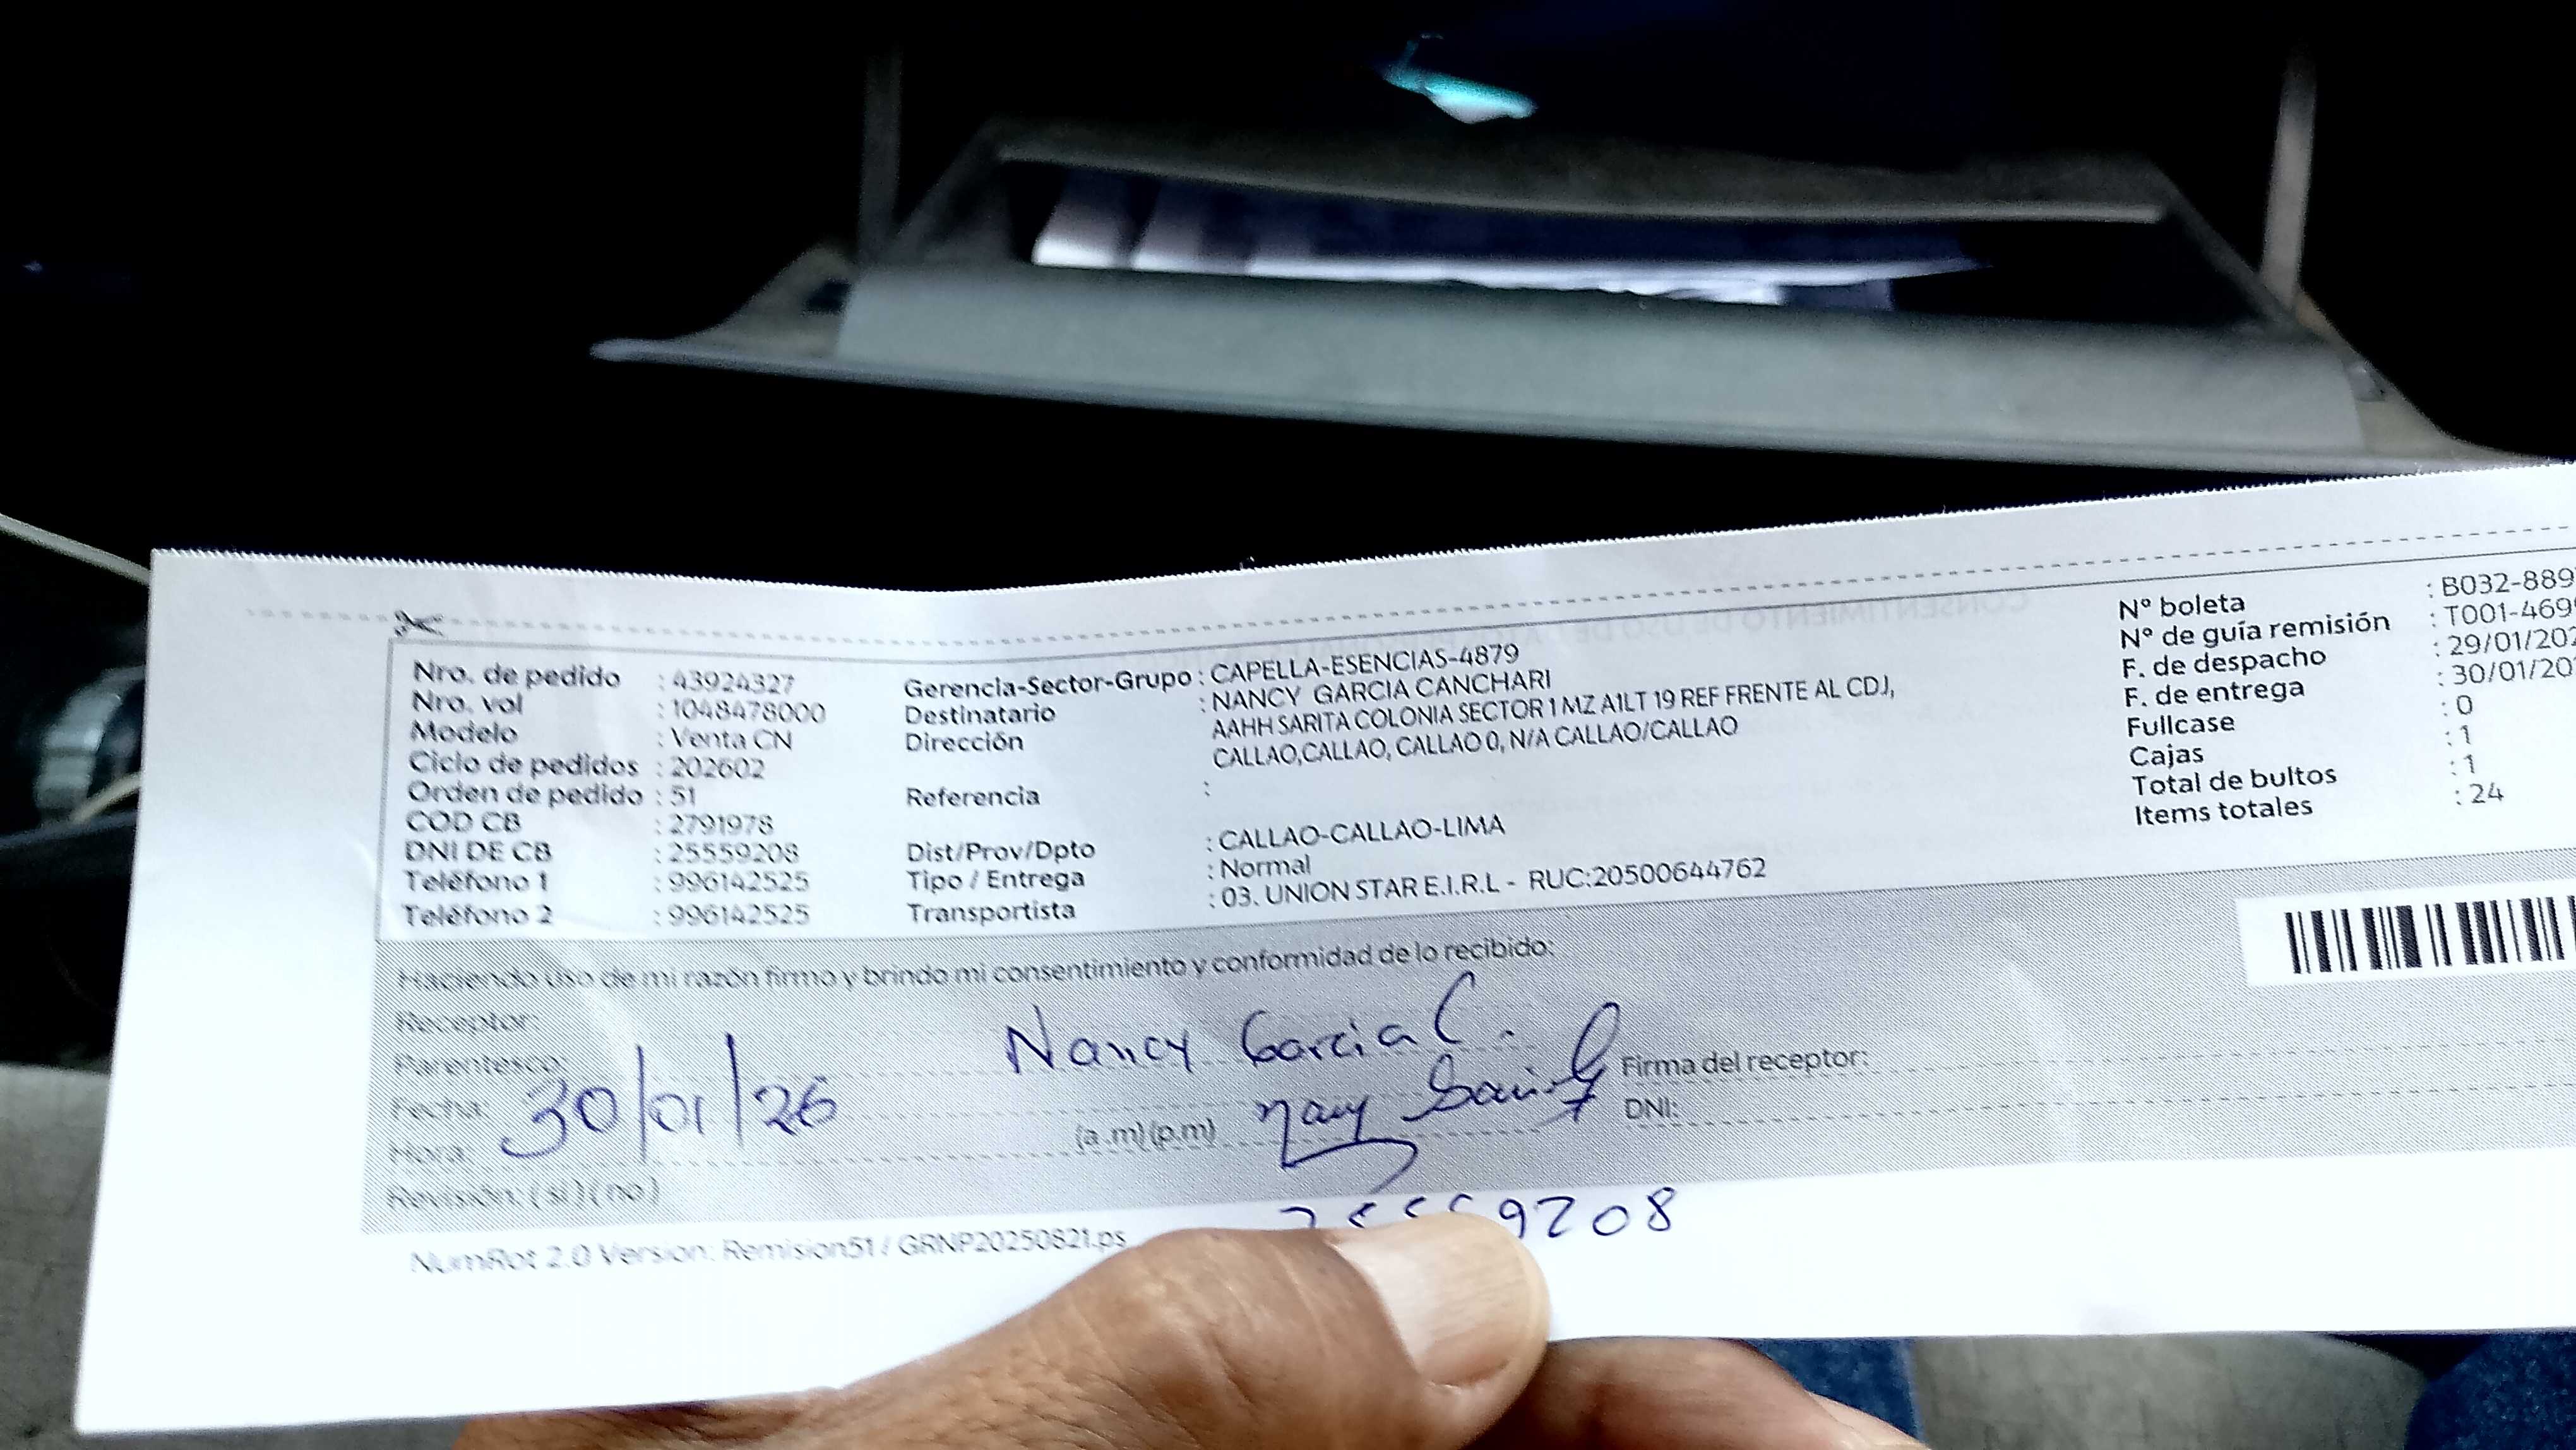 Nro. de pedido : 43924327
Nro. vol : 1048478000
Modelo : Venta CN
Ciclo de pedidos : 202602
Orden de pedido : 51
COD CB : 2791978
DNI DE CB : 25559208
Teléfono 1 : 996142525
Teléfono 2 : 996142525
Gerencia-Sector-Grupo : CAPELLA-ESENCIAS-4879
Destinatario : NANCY GARCIA CANCHARI
Dirección AAHH SARITA COLONIA SECTOR 1 MZ A1LT 19 REF FRENTE AL CDJ,
CALLAO,CALLAO, CALLAO 0, N/A CALLAO/CALLAO
Referencia :
Dist/Prov/Dpto : CALLAO-CALLAO-LIMA
Tipo / Entrega : Normal
Transportista : 03. UNION STAR E.I.R.L - RUC:20500644762
Nº boleta : B032-889
Nº de guía remisión : T001-469
F. de despacho : 29/01/202
F. de entrega : 30/01/20
Fullcase : 0
Cajas : 1
Total de bultos : 1
Items totales : 24
Haciendo uso de mi razón firmo y brindo mi consentimiento y conformidad de lo recibido:
Receptor: Nancy Garcia C.
Parentesco:
Fecha: 30/01/26
Hora: (a.m)(p.m)
Revisión: (si)(no)
Firma del receptor:
DNI:
9208
NumRot 2.0 Version: Remision51 / GRNP20250821.ps